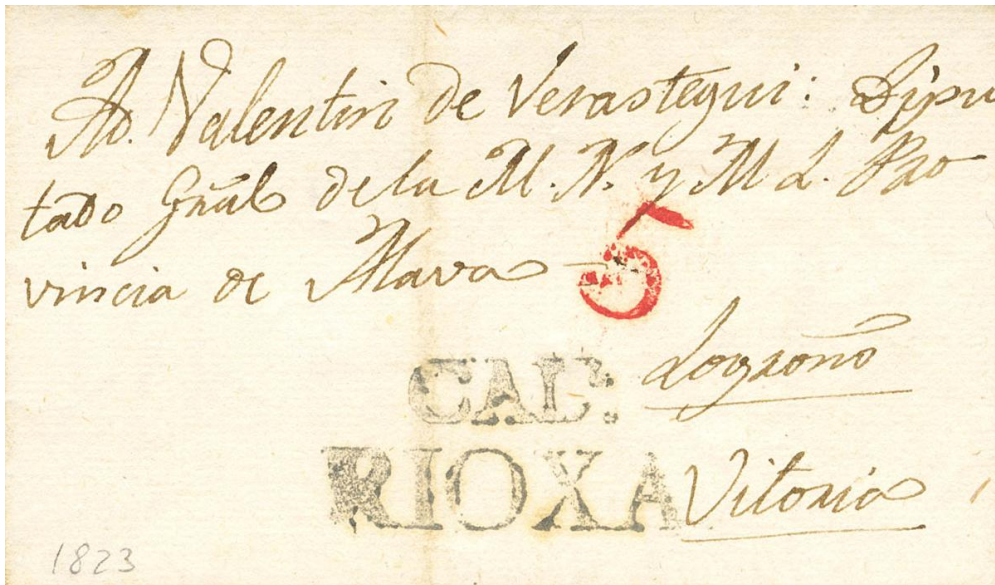 A D. Valentin de Verastegui: Dipu
tado Gñal de la M. N. y M L. Pro
vincia de Alava
5
Logroño
CALº.
RIOXA
Vitoria
1823